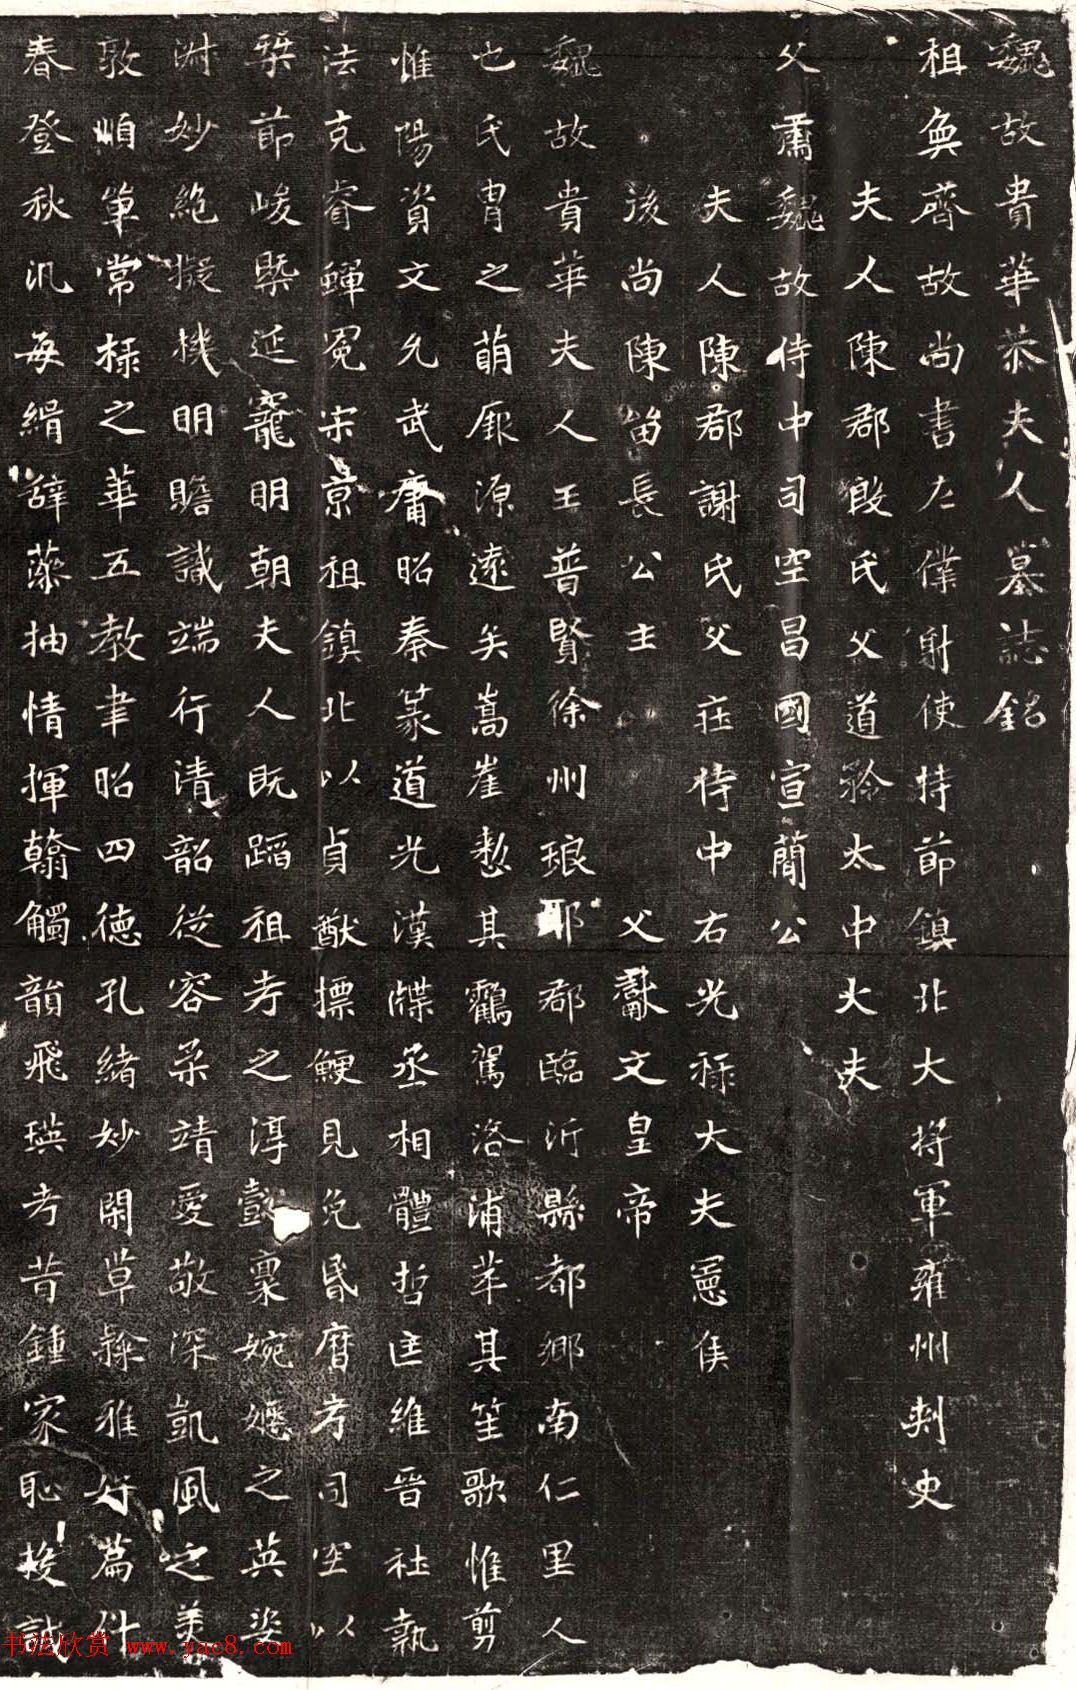 魏故貴華恭夫人墓誌銘
祖奐齊故尚書左僕射使持節鎮北大將軍雍州刺史
夫人陳郡殷氏父道矜太中大夫
父肅魏故侍中司空昌國宣簡公
夫人陳郡謝氏父莊侍中右光祿大夫憲侯
後尚陳留長公主　父獻文皇帝
魏故貴華夫人王普賢徐州琅耶郡臨沂縣都鄉南仁里人
也氏胄之萌厥源遠矣嵩崖慹其鸖駕洛浦萃其笙歌惟剪
惟陽資文允武庸昭秦篆道光漢牒丞相體哲匡維晉社執
法克睿冕宋京祖鎮北以貞猷摽鯁見免昏曆考司空以
節峻槩延寵明朝夫人既蹈祖考之淳懿稟婉嬺之英姿
淵妙絕擬機明贍識端行清韶從容柔靖愛敬深凱風之美
敦順單常棣之華五教聿昭四德孔緒妙閑草隸雅好篇什
春登秋汎每緝辭藻抽情揮翰觸韻飛瑛考昔鍾家恥捘
书法欣赏 www.yac8.com